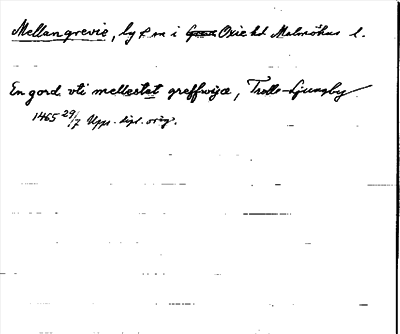 Mellangrevie, by & sn i Oxie hd Malmöhus l.
En gord vti mellestet greffwiæ, Trolle-Ljungby
1465 29/7 Upps. dipl. orig.